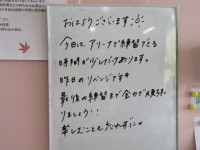 おはようございます。
今日は、アリーナで練習できる
時間が少しだけあります。
昨日のリベンジです*
最後の練習まで全力で頑張
りましょう!!
楽しむことも忘れずに♡